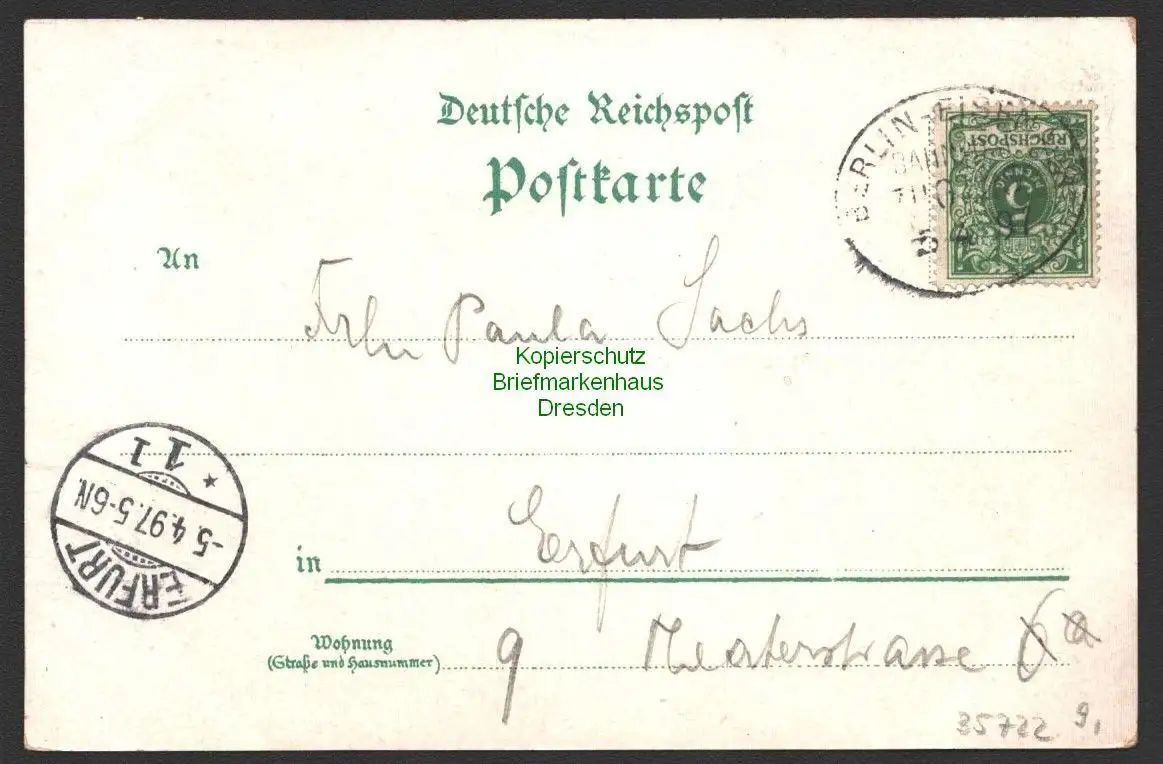 Deutsche Reichspost
Postkarte
An
Frln Paula Sachs
in Erfurt
Wohnung
(Straße und Hausnummer)
9 Theaterstrasse 6a
9,
35722
BERLIN-EISEN
BAHN
ZUG
5 4 97
REICHSPOST
5
PFENNIG
ERFURT
-5.4.97.5-6N.
* 1 1
Kopierschutz
Briefmarkenhaus
Dresden